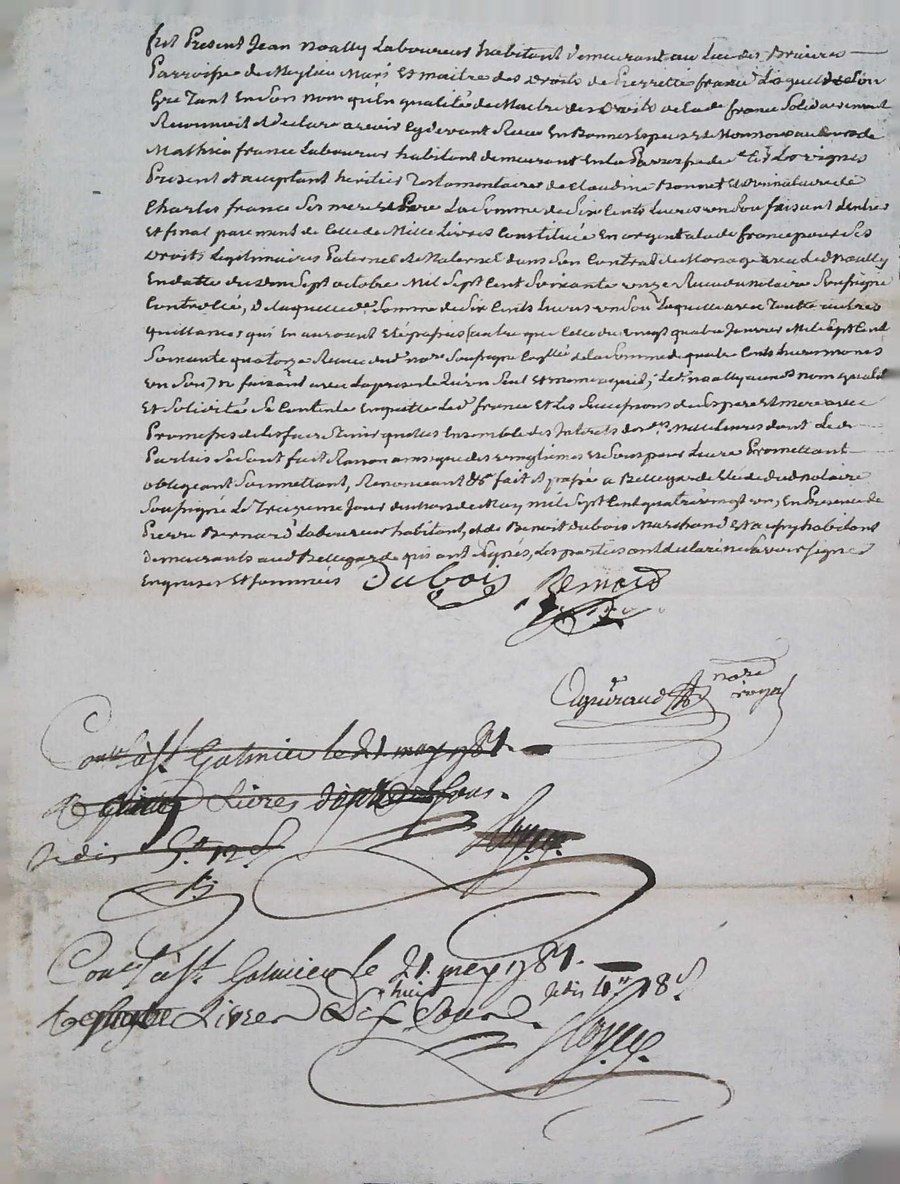 fut Present Jean Noally Laboureur habitant demeurant au Lieu des Bruieres
Parroisse de Meylieu Mary Et maitre des Droits de Pierrette france Lequel de son
Gré Tant En son nom qu'En qualité de Maitre des Droits de lad. france Solidairement
Reconnoit et declare avoir cy devant Receu En Bonnes Especes de Monnoye au Cours de
Mathieu france Laboureur habitant demeurant En la Parroisse de
Present et acceptant heritier Testamentaire de Claudine Bonnet Et Donnataire de
Charles france Ses mere et Pere La Somme de Six Cents Livres un Sou faisant d'entier
Et final paiement de Celle de Mille Livres Constituée En argent a lad. france pour Ses
Droits Legitimaires Paternel et Maternel dans son Contrat de Mariage avec led. Noally
En datte du dix Sept octobre Mil Sept Cent Soixante onze Receu du notaire Soussigné
Controllé, De laquelle de. Somme de Six Cents Livres un Sou Laquelle avec Toutte autres
quittances qui En auroient Eté passés (autre que Celle du vingt quatre Janvier Mil Sept Cent
Soixante quatorze Receue dud. nore. Soussigné de la Somme de quatre Cents Livres
un Sou) ne faisant avec La presente qu'un Seul Et meme acquit; Led. Noally auxd. nom qualité
Et Solidité Se Contente En quitte led. france Et Les Successions de Ses pere Et mere avec
Promesses de Les faire Tenir quittes Ensemble des Interets desd. Mille Livres dont Les
Parties Se Sont fait Raison a Promettant
obligeant Soumettant, Renonceant &c. fait et passé a Bellegarde Etude dud. notaire
Soussigné Le Treizieme Jour du Mois de May mil Sept Cent quatre vingt un, En Presence de
Pierre Bernard Laboureur habitant, et de Benoit dubois Marchand habitant
Demeurants aud. Bellegarde qui ont Signés, Les parties ont declaré ne Savoir Signer
Enquises Et Sommées Dubois Bernard
nore
royal
Conlé à St. Galmier le 21 may 1781.
Livres Sous.
Conlé à St. Galmier le 21. mey 1781.
Livres Dix huit Sous. 18 s